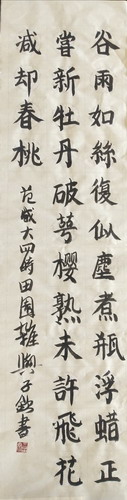 谷雨如絲復似塵煮瓶浮蜡正
嘗新牡丹破萼櫻熟未許飛花
減却春桃
范成大四時田園雜興子欽書